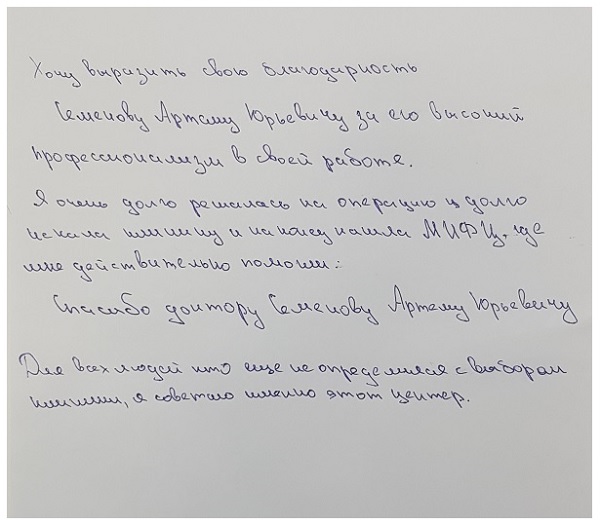 Хочу выразить свою благодарность
Семенову Артему Юрьевичу за его высокий
профессионализм в своей работе.
Я очень долго решалась на операцию и долго
искала клинику и наконец нашла МИФЦ, где
мне действительно помогли.
Спасибо доктору Семенову Артему Юрьевичу
Для всех людей кто еще не определился с выбором
клиники, я советую именно этот центр.